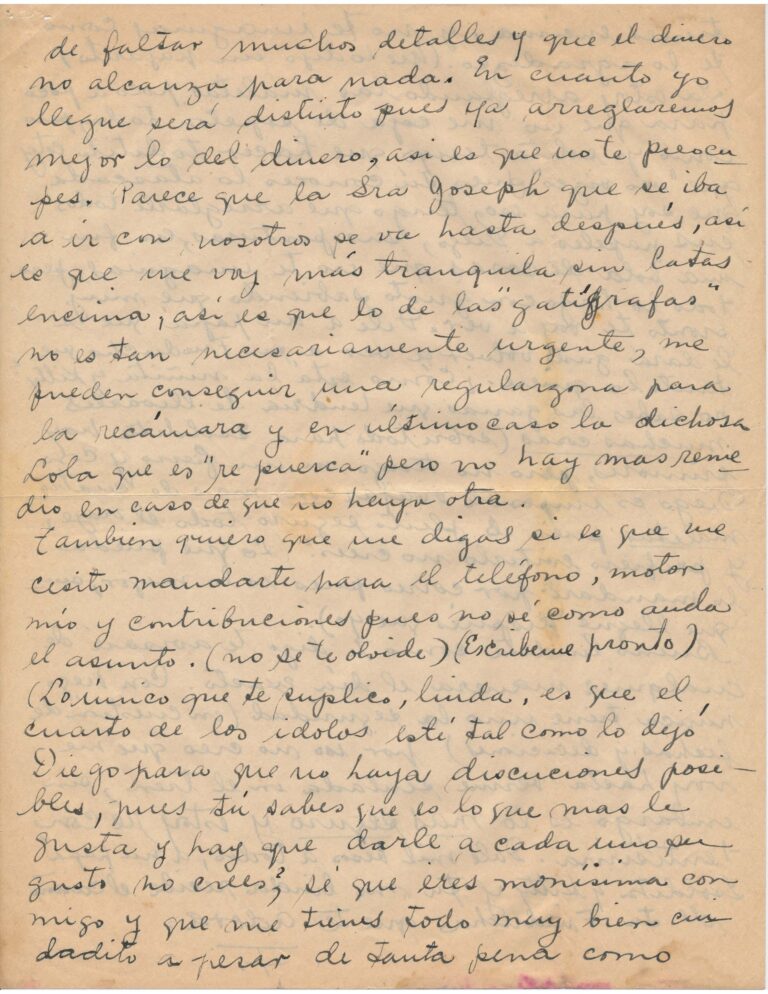 de faltar muchos detalles y que el dinero
no alcanza para nada. En cuanto yo
llegue será distinto pues ya arreglaremos
mejor lo del dinero, asi es que no te preocu-
pes. Parece que la Sra Joseph que se iba
a ir con nosotros se va hasta después, así
es que me voy más tranquila sin latas
encima, así es que lo de las "gatígrafas"
no es tan necesariamente urgente, me
pueden conseguir una regularzona para
la recámara y en últimocaso la dichosa
Lola que es "re puerca" pero no hay mas reme-
dio en caso de que no haya otra.
Tambien quiero que me digas si es que ne
cesito mandarte para el teléfono, motor
mío y contribuciones pues no sé como anda
el asunto. (no se te olvide) (Escribeme pronto)
(Loúnico que te suplico, linda, es que el
cuarto de los idolos esté tal como lo dejó
Diego para que no haya discuciones posi-
bles, pues tú sabes que es lo que mas le
gusta y hay que darle a cada uno su
gusto no crees? sé que eres monísima con
migo y que me tienes todo muy bien cui-
dadito a pesar de tanta pena como